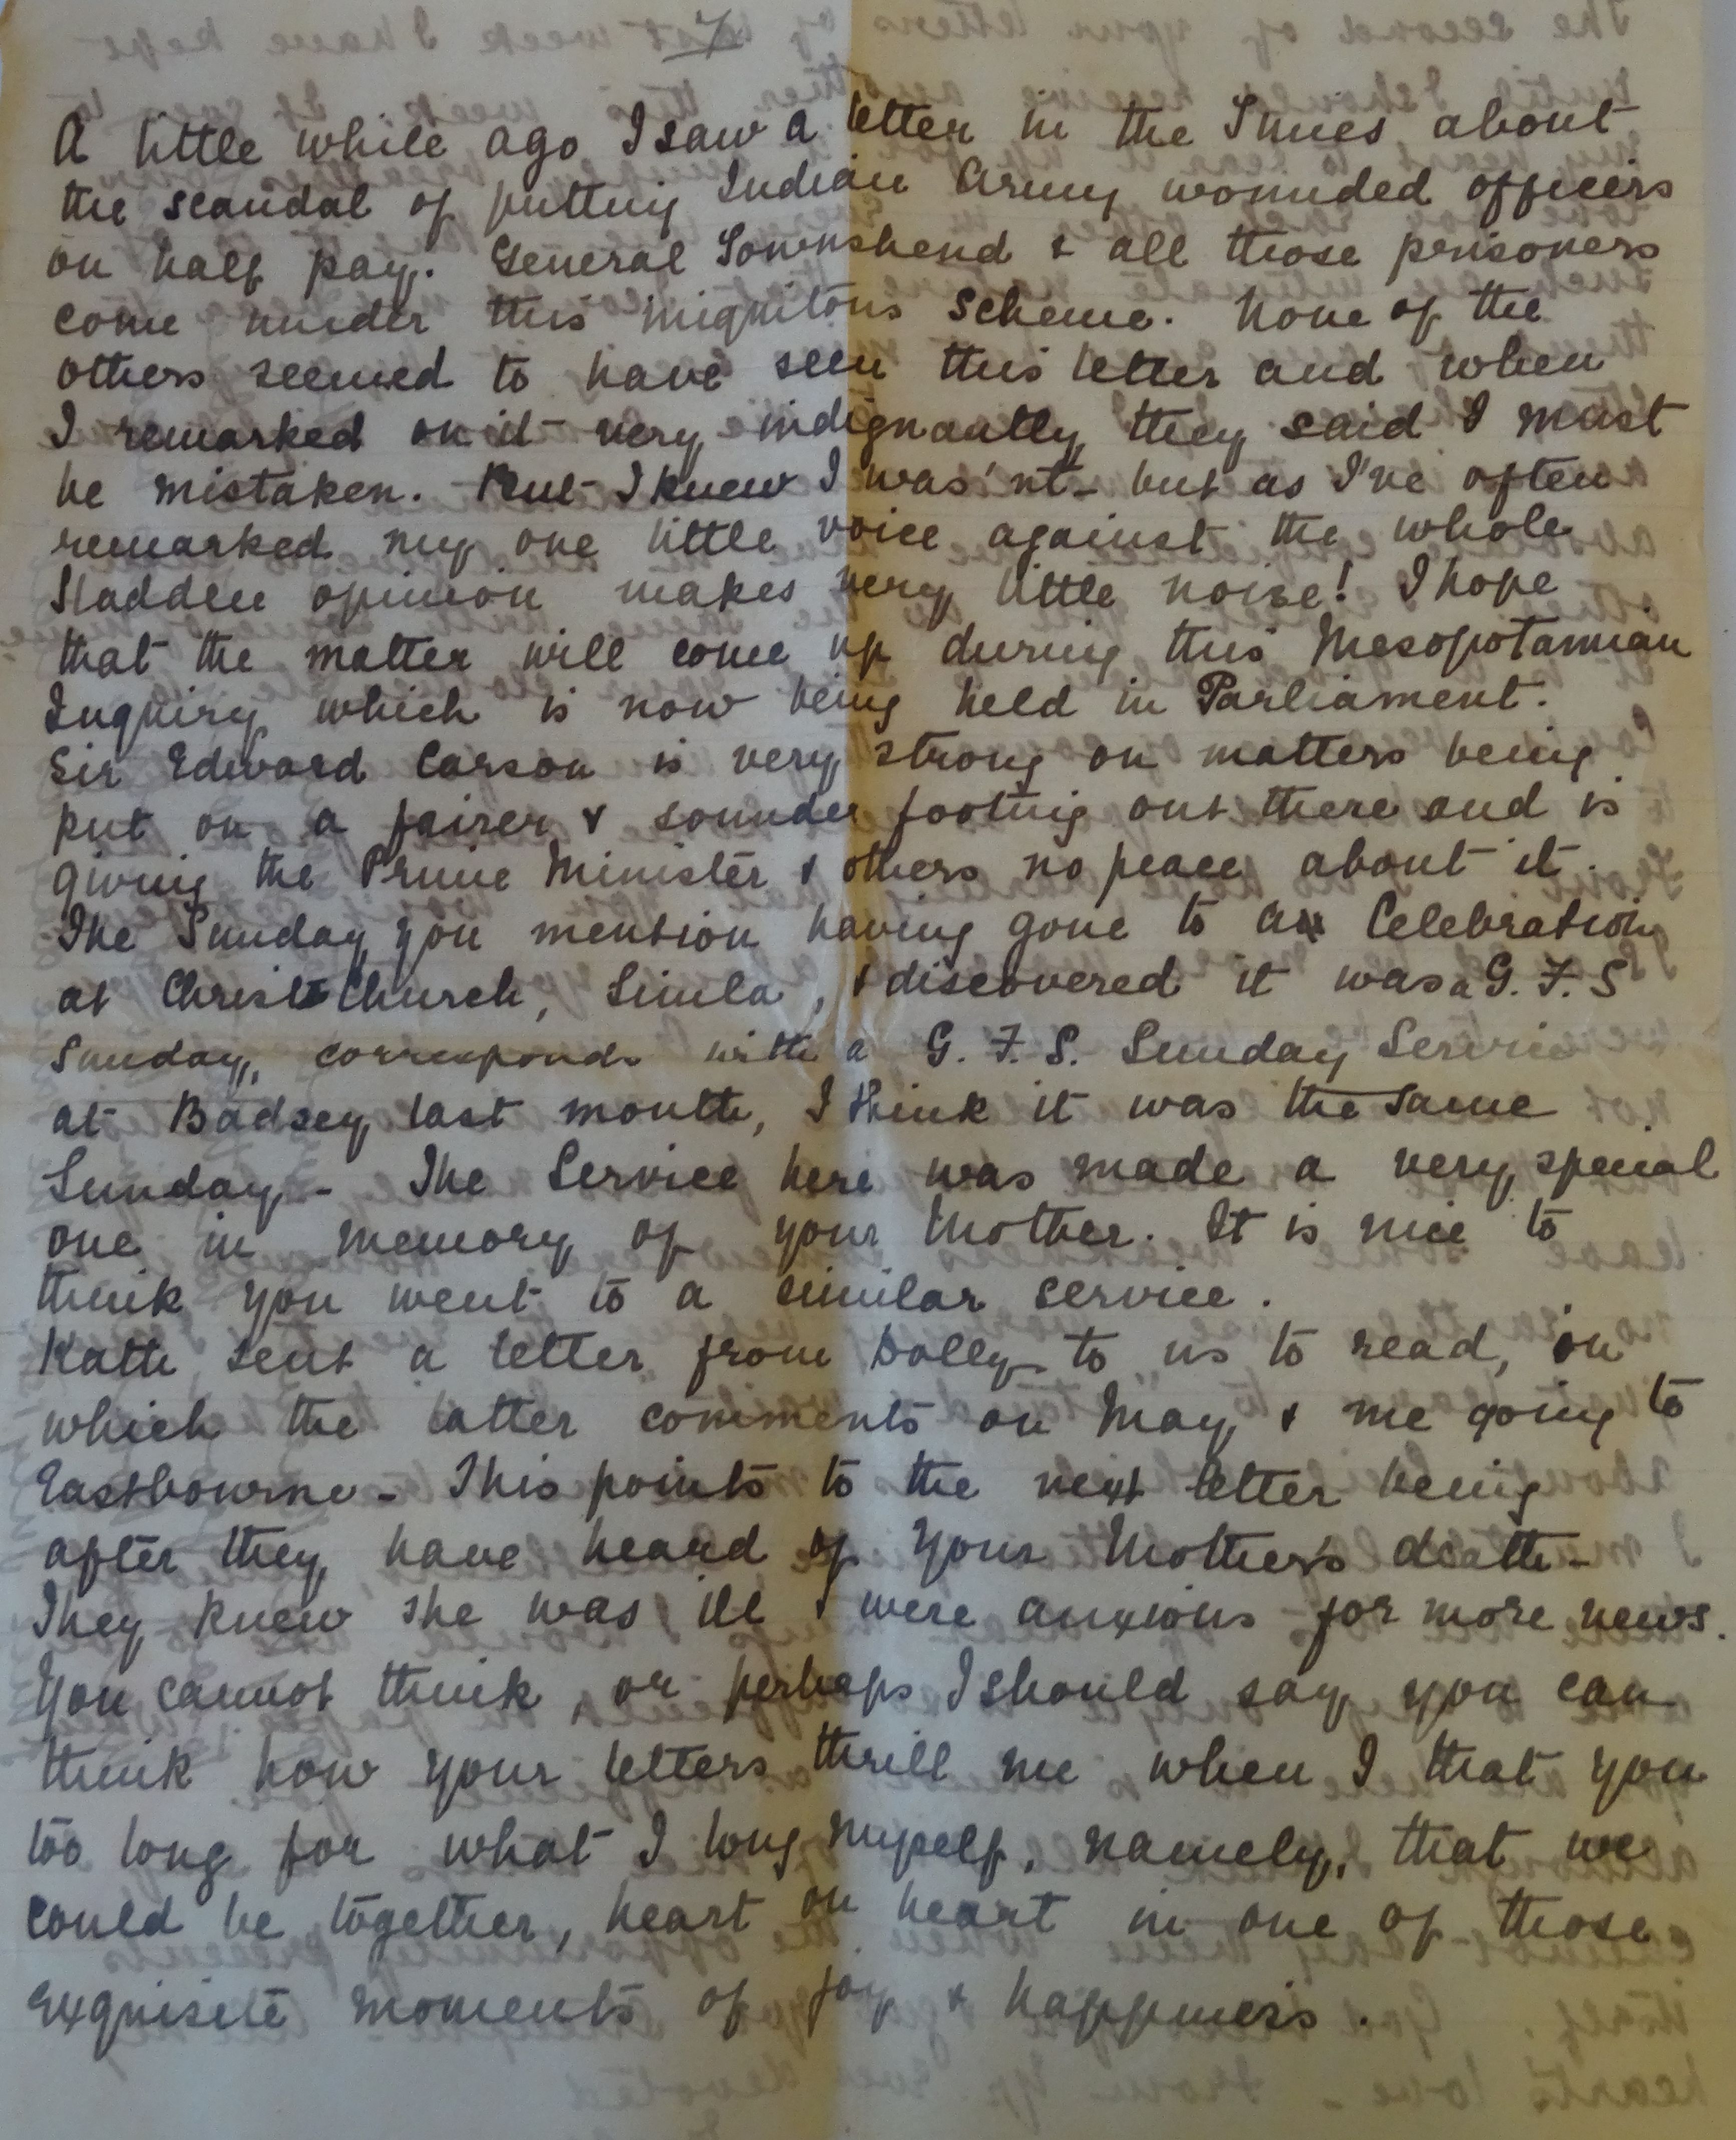 7
A little while ago I saw a letter in the Times about
the scandal of putting Indian Army wounded officers
on half pay. General Townshend & all those prisoners
come under this iniquitous scheme. None of the
others seemed to have seen this letter and when
I remarked on it very indignantly they said I must
be mistaken. But I knew I was'nt – but as I've often
remarked my one little voice against the whole
Sladden opinion makes very little noise! I hope
that the matter will come up during this Mesopotamian
Inquiry which is now being held in Parliament.
Sir Edward Carson is very strong on matters being
put on a fairer & sounder footing out there and is
giving the Prime Minister & others no peace about it.
The Sunday you mention having gone to a Celebration
at Christ Church, Simla, & discovered it was a G.F.S
Sunday, corresponds with a G.F.S. Sunday Service
at Badsey last month, I think it was the same
Sunday – The Service here was made a very special
one in memory of your Mother. It is nice to
think you went to a similar service.
Kath sent a letter from Dolly to us to read, in
which the latter comments on May & me going to
Eastbourne – This points to the next letter being
after they have heard of your Mother's death –
They knew she was ill & were anxious for more news.
You cannot think, or perhaps I should say you can
think how your letters thrill me when I that you
too long for what I long myself, namely, that we
could be together, heart on heart in one of those
exquisite moments of joy & happiness.